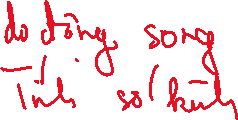 do đồng song
Tính số kính